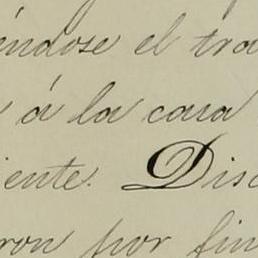 éndose el tra
á la casa
iente. Disc
ron por fin